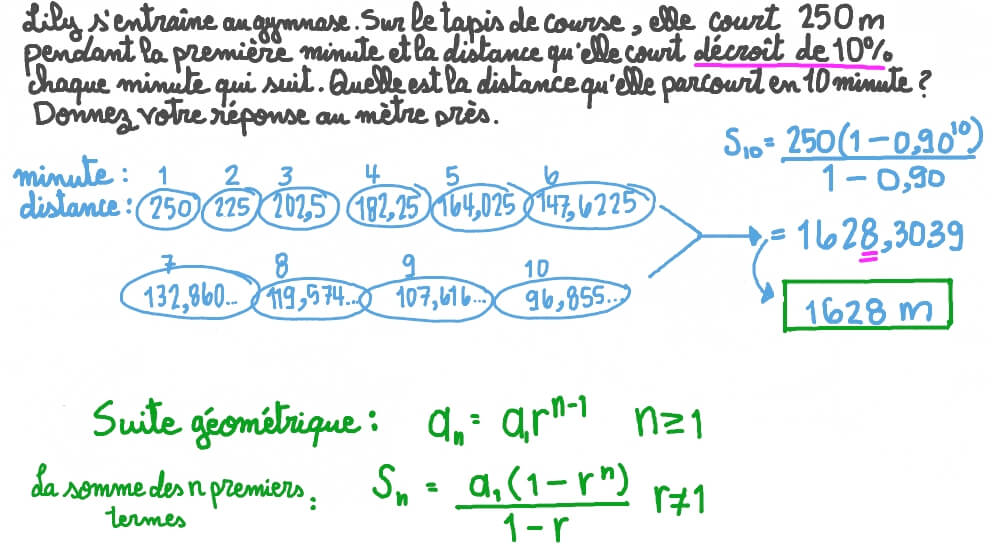 Lily s'entraîne au gymnase. Sur le tapis de course, elle court 250 m
pendant la première minute et la distance qu'elle court décroît de 10%
chaque minute qui suit. Quelle est la distance qu'elle parcourt en 10 minute ?
Donnez votre réponse au mètre près.
S₁₀ = 250(1 - 0,90¹⁰) / 1 - 0,90
minute : 1 2 3 4 5 6
distance : 250 225 202,5 182,25 164,025 147,6225
= 1628,3039
7 8 9 10
132,860... 119,574... 107,616... 96,855...
1628 m
Suite géométrique : aₙ = a₁rⁿ⁻¹ n≥1
La somme des n premiers termes : Sₙ = a₁(1 - rⁿ) / 1 - r r≠1